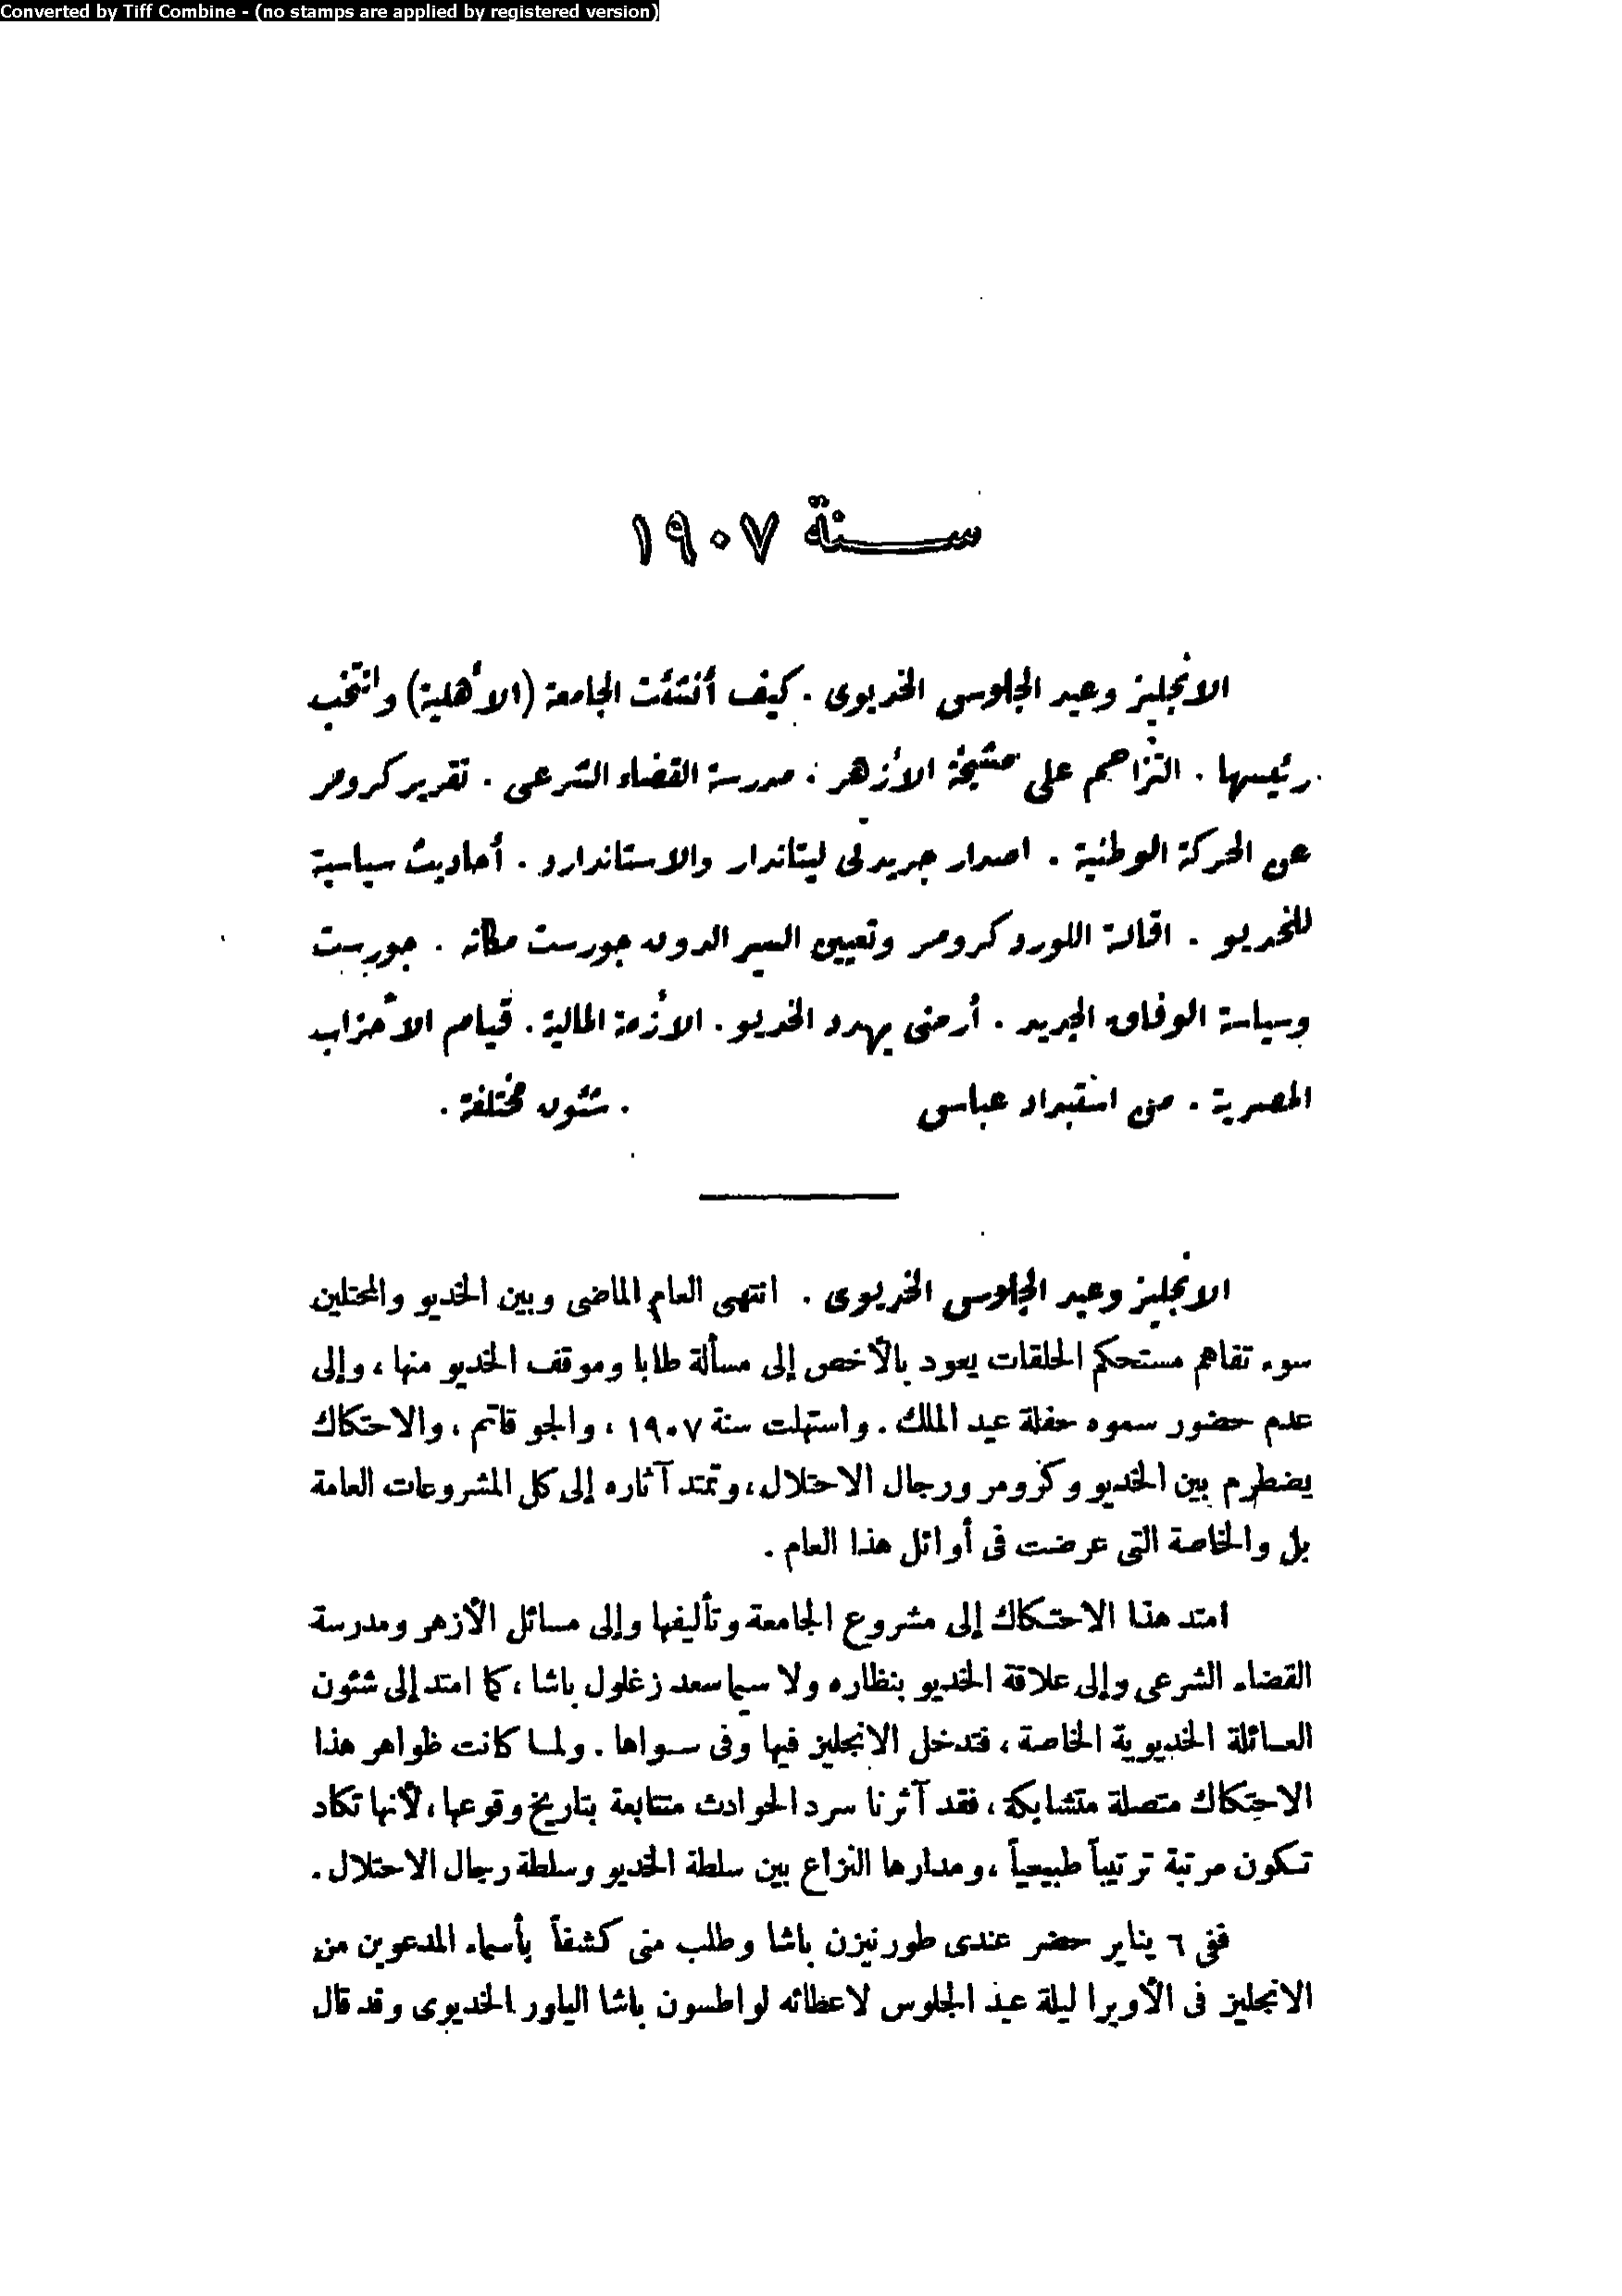 Converted by Tiff Combine - (no stamps are applied by registered version)
سنة ١٩٠٧
الانجليز وعيد الجلوس الخديوى . كيف أنشئت الجامعة (الأهلية) وانتخب
رئيسها . التزاحم على مشيخة الأزهر . مدرسة القضاء الشرعى . تقرير كرومر
عن الحركة الوطنية . اصدار جريدتى ليتاندار والاستاندارد . أحاديث سياسية
للخديو . اقالة اللورد كرومر وتعيين السير الدون جورست مكانه . جورست
وسياسة الوفاق الجديد . أرمنى يهدد الخديو . الأزمة المالية . قيام الأحزاب
المصرية . من استبداد عباس . شئون مختلفة .
الانجليز وعيد الجلوس الخديوى . انتهى العام الماضى وبين الخديو والمحتلين
سوء تفاهم مستحكم الحلقات يعود بالأخص إلى مسألة طابا وموقف الخديو منها ، وإلى
عدم حضور سموه حفلة عيد الملك . واستهلت سنة ١٩٠٧ ، والجو قاتم ، والاحتكاك
يضطرم بين الخديو وكرومر ورجال الاحتلال ، وتمتد آثاره إلى كل المشروعات العامة
بل والخاصة التى عرضت فى أوائل هذا العام .
امتد هذا الاحتكاك إلى مشروع الجامعة وتأليفها وإلى مسائل الأزهر ومدرسة
القضاء الشرعى وإلى علاقة الخديو بنظاره ولا سيما سعد زغلول باشا ، كما امتد إلى شئون
العائلة الخديوية الخاصة ، فتدخل الانجليز فيها وفى سواها . ولما كانت ظواهر هذا
الاحتكاك متصلة متشابكة ، فقد آثرنا سرد الحوادث متتابعة بتاريخ وقوعها ، لأنها تكاد
تكون مرتبة ترتيباً طبيعياً ، ومدارها النزاع بين سلطة الخديو وسلطة رجال الاحتلال .
ففى ٦ يناير حضر عندى طورنيزن باشا وطلب منى كشفاً بأسماء المدعوين من
الانجليز فى الأوبرا ليلة عيد الجلوس لاعطائه لواطسون باشا الياور الخديوى وقد قال